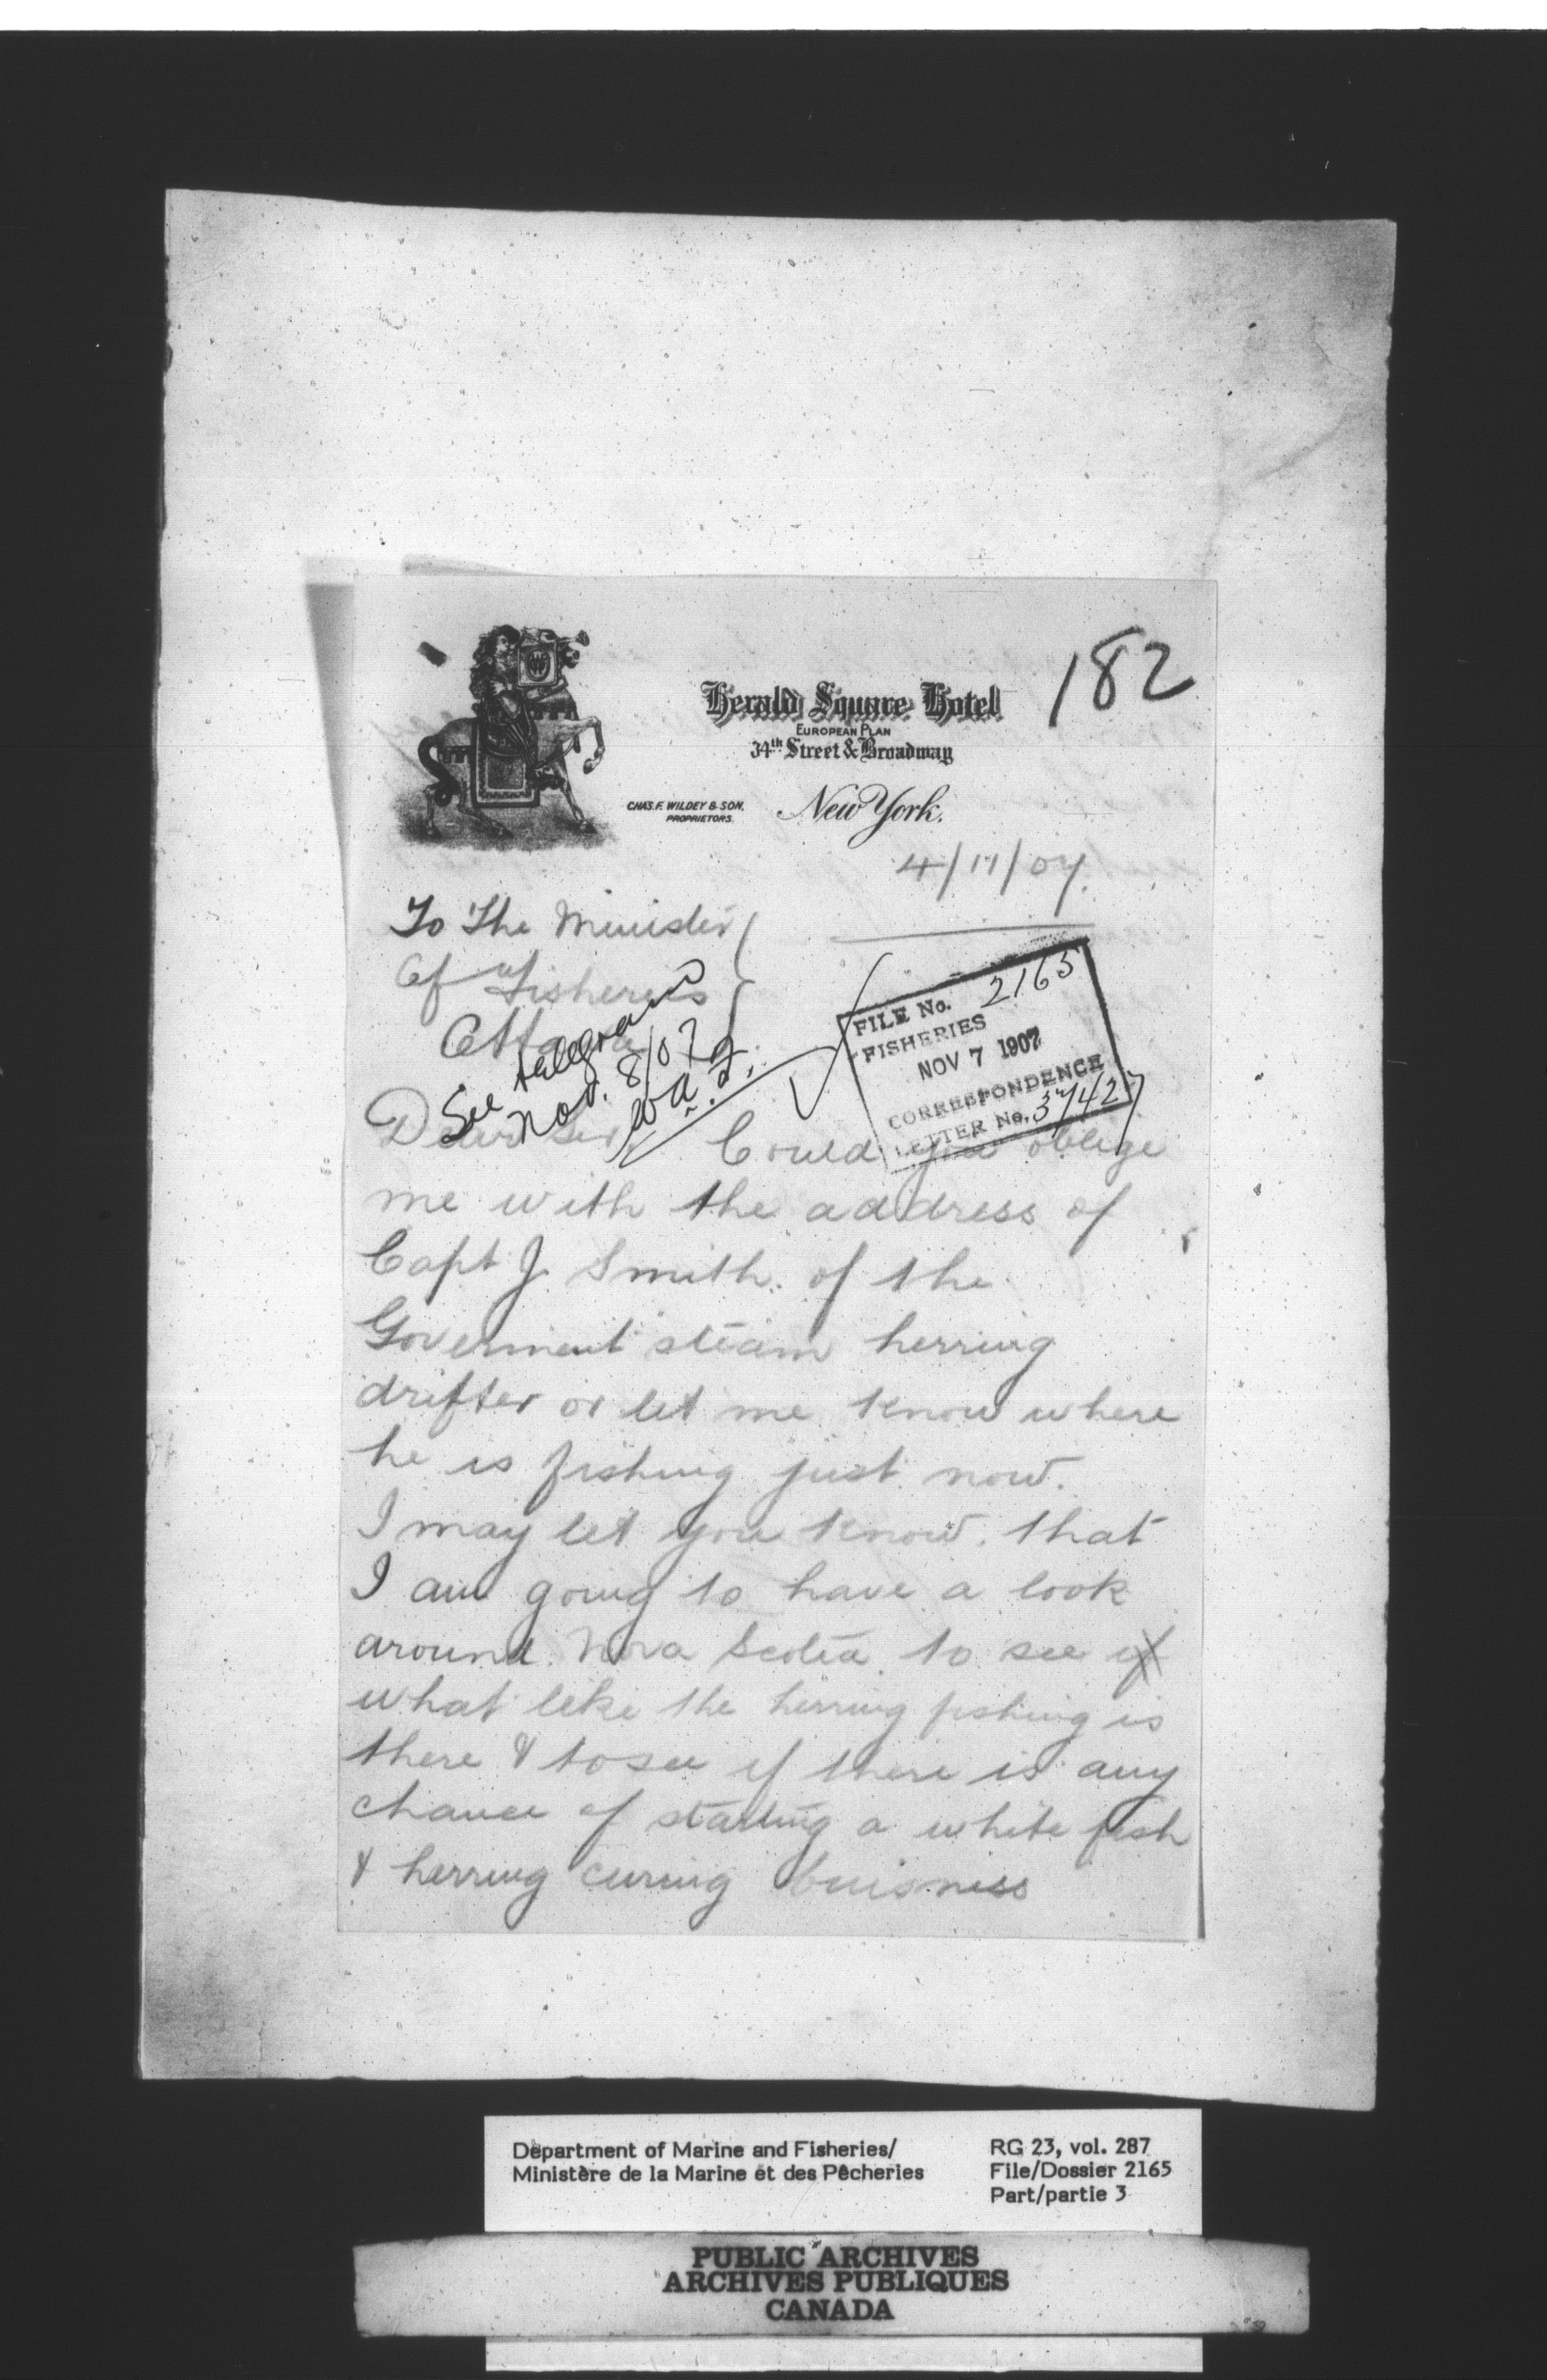 182
Herald Square Hotel
EUROPEAN PLAN
34th Street & Broadway
CHAS. F. WILDEY & SON,
PROPRIETORS.
New York.
4/11/07.
To The Minister
Of Fisheries
Ottawa
See telegram
Nov. 8/07
FILE No. 2165
FISHERIES
NOV 7 1907
CORRESPONDENCE
LETTER No. 37427
Dear Sir, Could you oblige
me with the address of
Capt J. Smith. of the
Goverment steam herring
drifter or let me know where
he is fishing just now.
I may let you know. that
I am going to have a look
around Nova Scotia. to see if
what like the herring fishing is
there & to see if there is any
chance of starting a white fish
& herring curing buisness
Department of Marine and Fisheries/
Ministère de la Marine et des Pêcheries
RG 23, vol. 287
File/Dossier 2165
Part/partie 3
PUBLIC ARCHIVES
ARCHIVES PUBLIQUES
CANADA